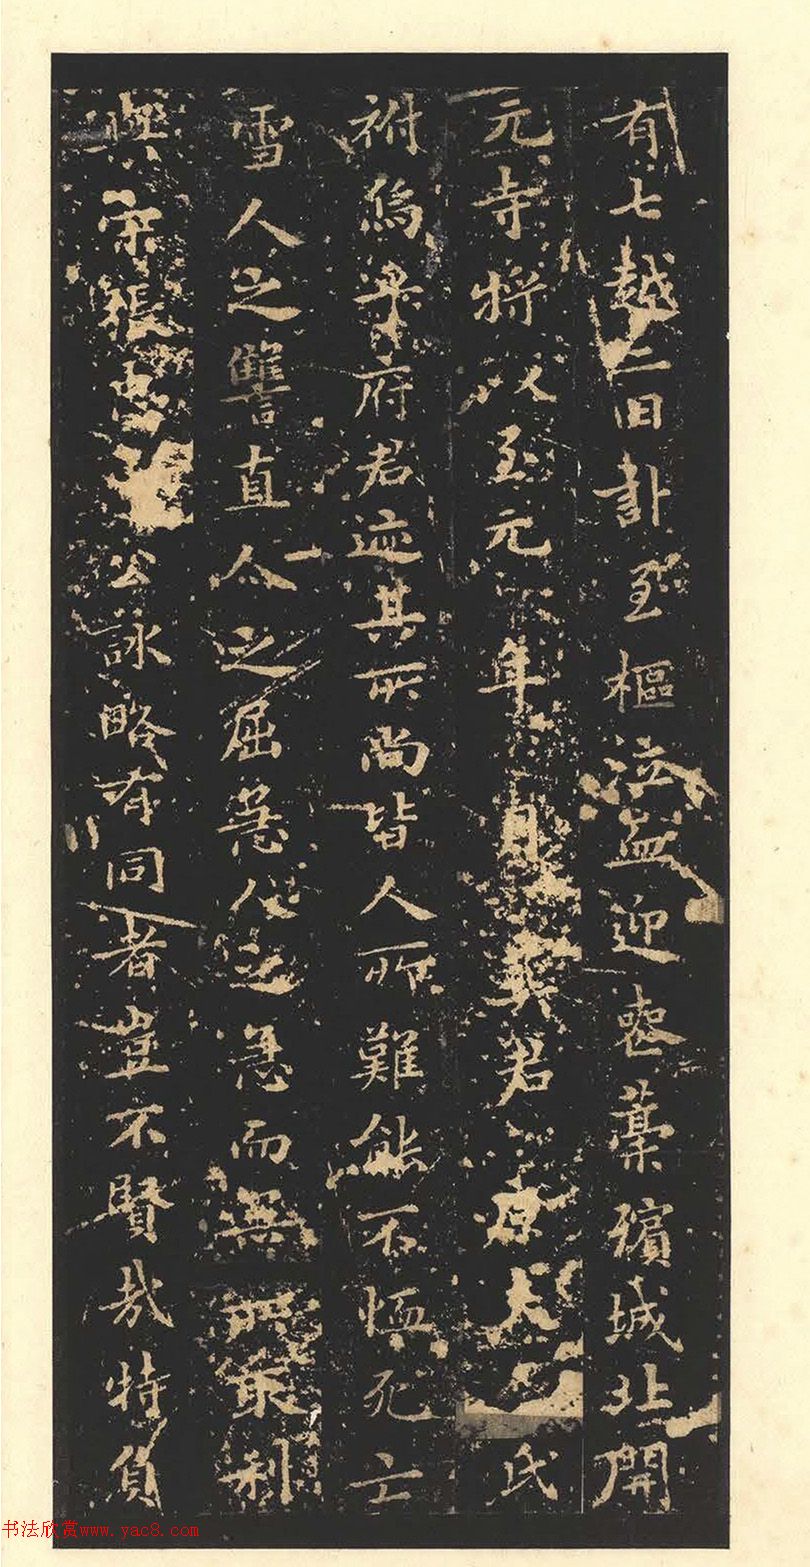 有七越二日訃至樞泣血迎喪藁殯城北開
元寺將以至元 年 月 葬君 原夫人 氏
祔為梁府君迹其所尚皆人所難能不恤死亡
雪人之讐直人之屈急人之急而無 梁利
與宋張 公詠略有同者豈不賢哉特負
书法欣赏www.yac8.com